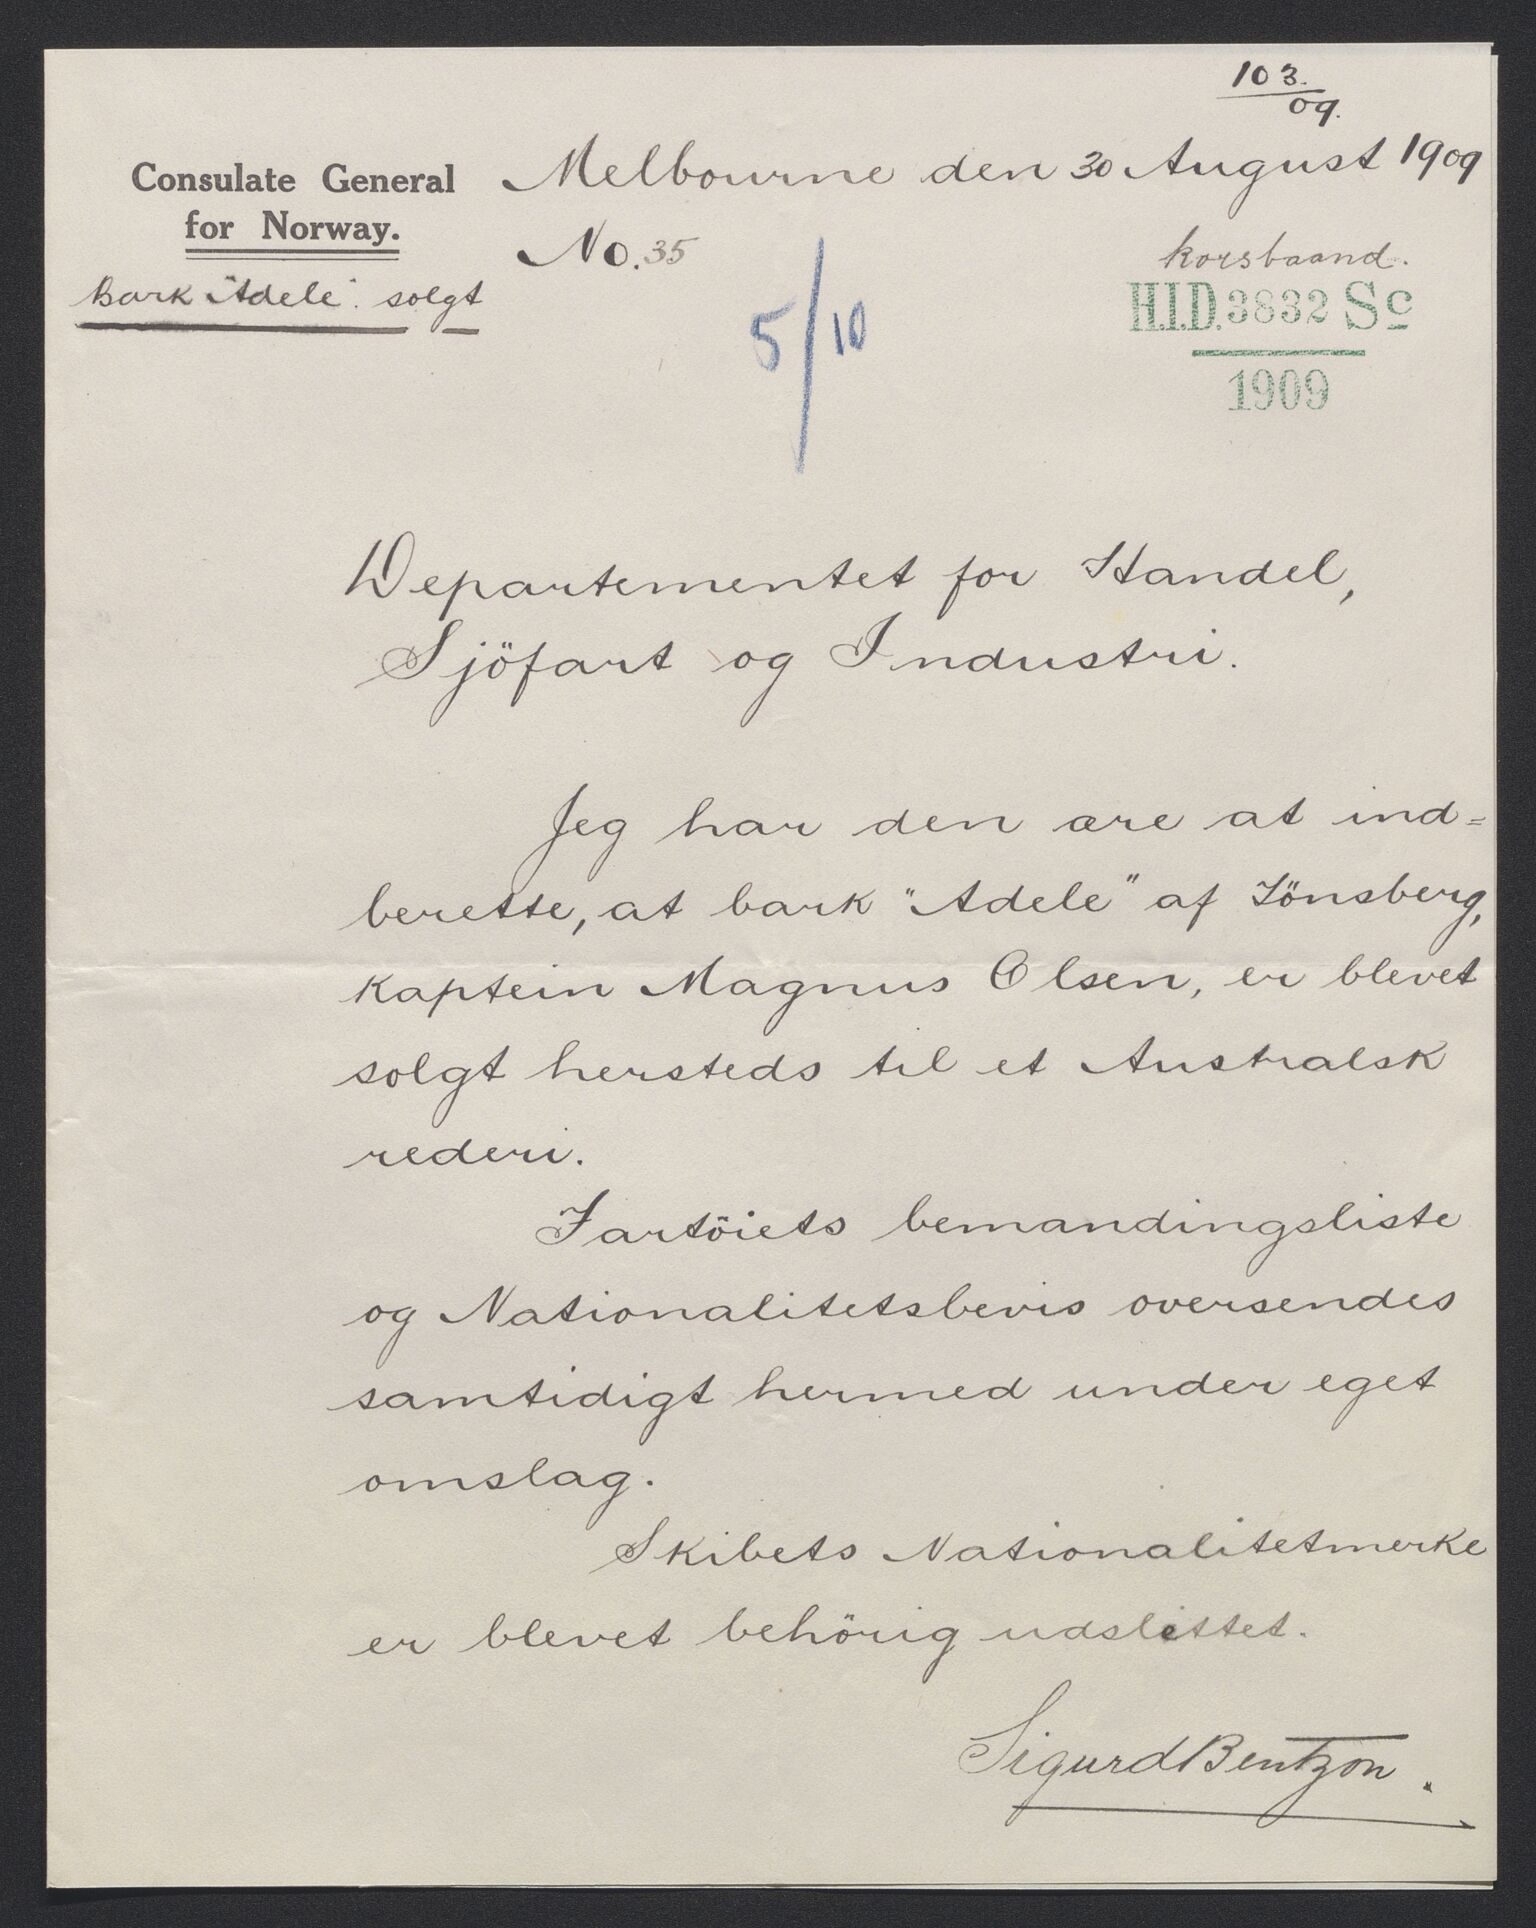 103.
09.
Consulate General
for Norway.
Melbourne den 30 August 1909
No. 35
Bark "Adele" solgt
korsbaand.
H.I.D. 3832 Sc
1909
5/10
Departementet for Handel,
Sjöfart og Industri.
Jeg har den ære at ind=
berette, at bark "Adele" af Tönsberg,
kaptein Magnus Olsen, er blevet
solgt hersteds til et Australsk
rederi.
Fartöiets bemandingsliste
og Nationalitetsbevis oversendes
samtidigt hermed under eget
omslag.
Skibets Nationalitetmerke
er blevet behörig udslettet.
Sigurd Bentzon.